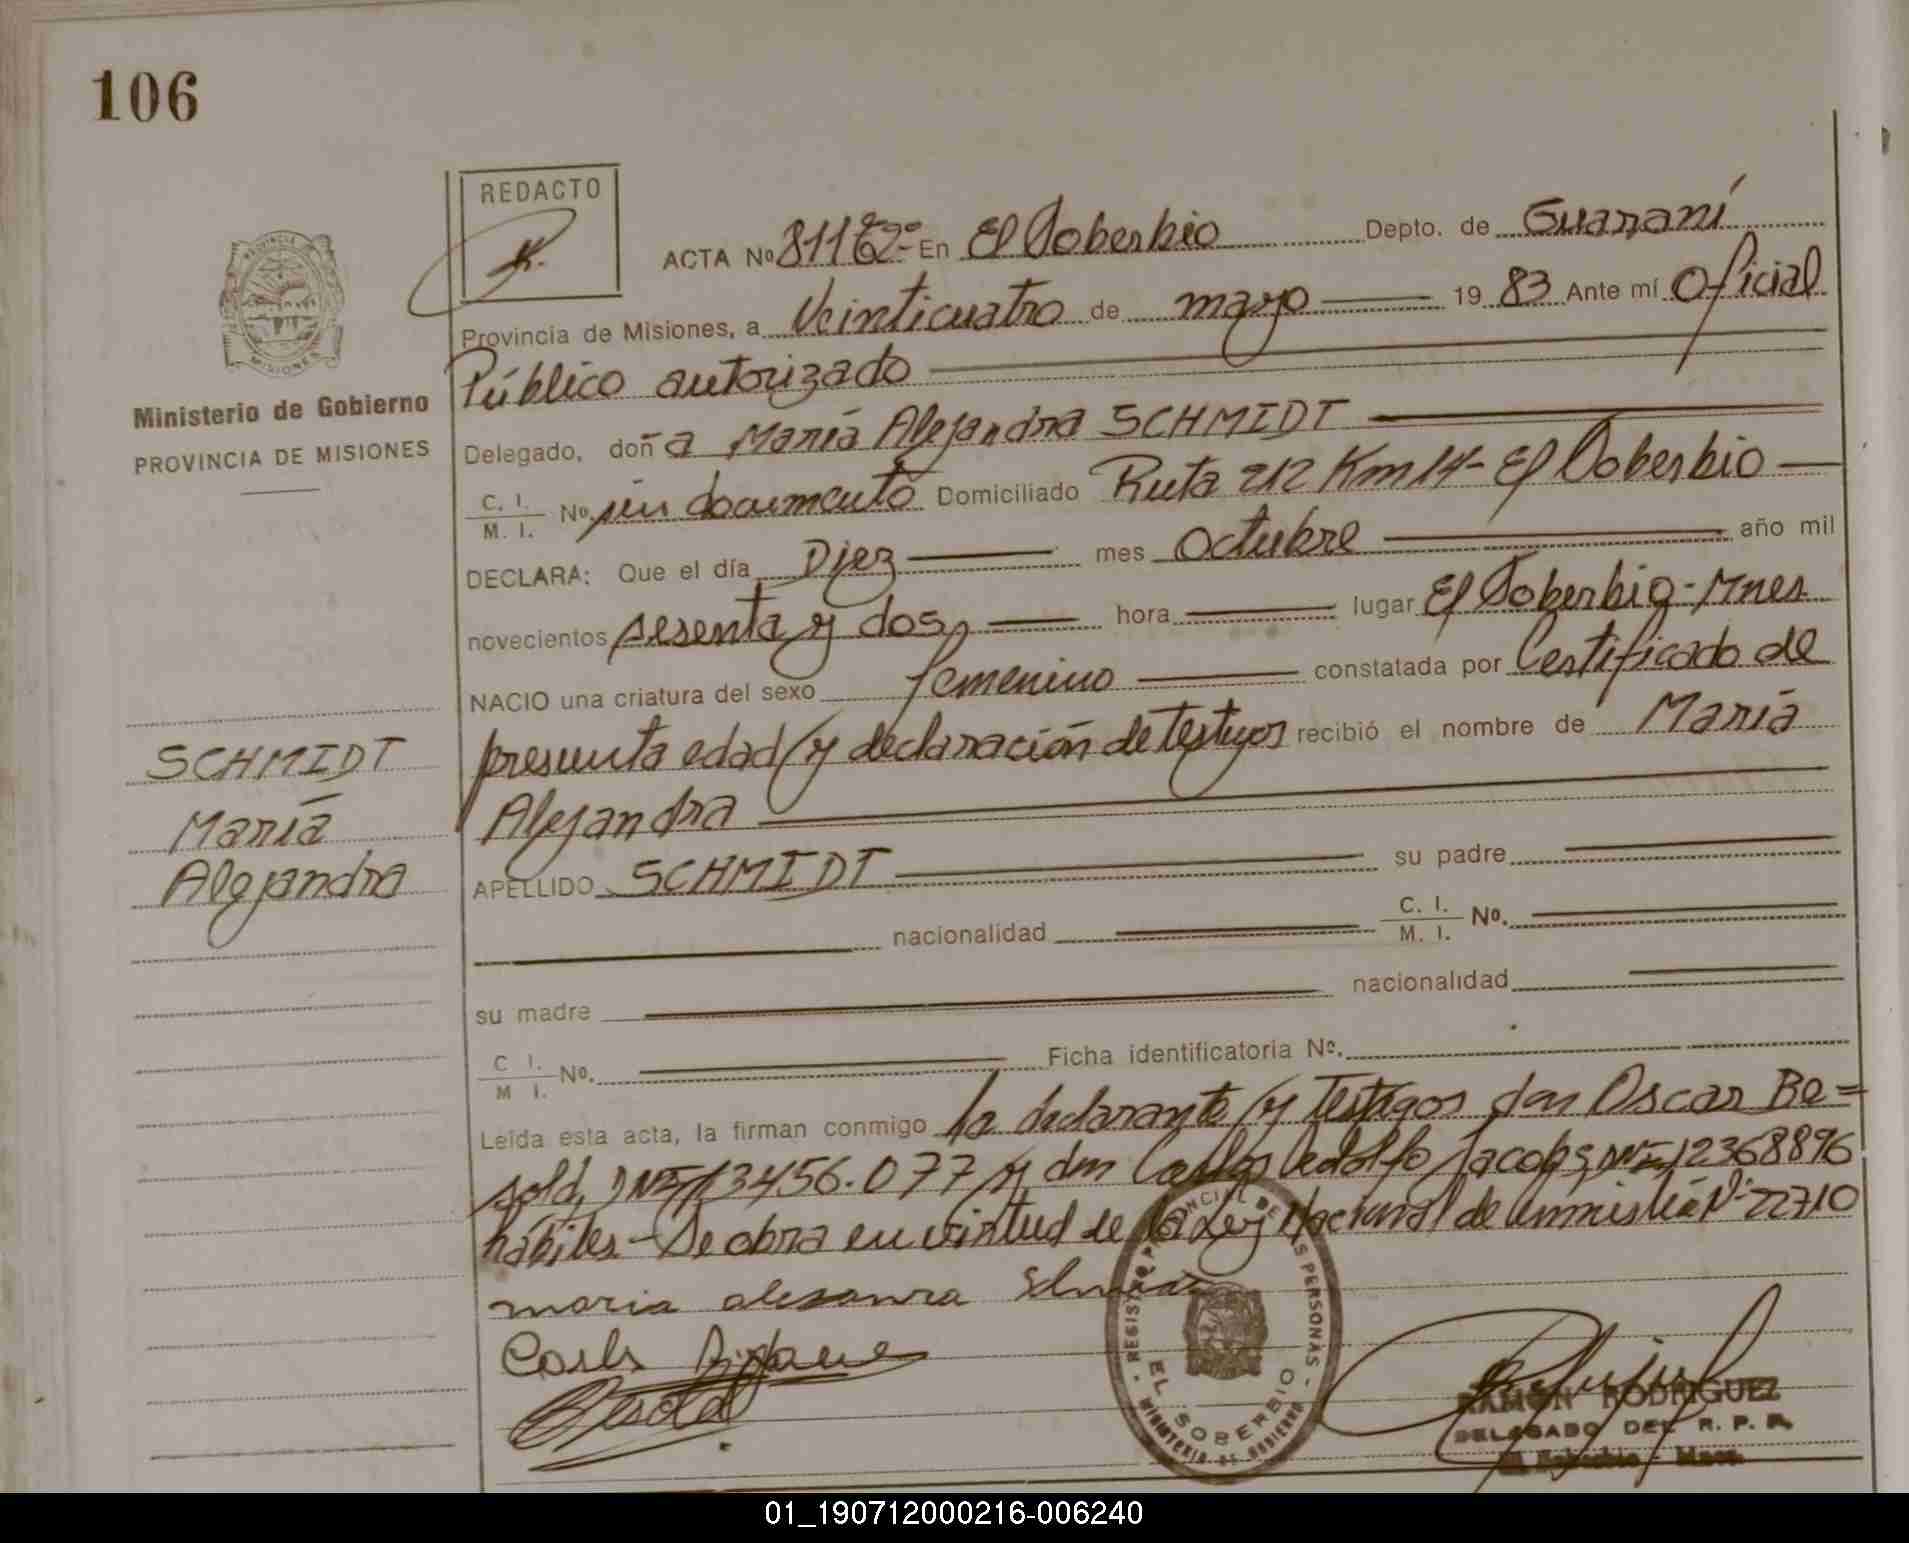 106
REDACTO
ACTA Nº 811 En El Soberbio Depto. de Guaraní
Provincia de Misiones, a Veinticuatro de mayo 19 83 Ante mí Oficial
Público autorizado
Delegado, doña María Alejandra SCHMIDT
C. I.
M. I. Nº sin documento Domiciliado Ruta 212 Km 14 - El Soberbio
DECLARA: Que el día Diez mes octubre año mil
novecientos sesenta y dos, hora lugar El Soberbio - Mnes
NACIO una criatura del sexo femenino constatada por Certificado de
presunta edad y declaración de testigos recibió el nombre de María
Alejandra
APELLIDO SCHMIDT su padre
nacionalidad C. I.
M. I. Nº.
su madre nacionalidad
C I.
M I. Nº. Ficha identificatoria Nº.
Leída esta acta, la firman conmigo la declarante y Testigos don Oscar Be=
sold, DNI 13456.077 y don Carlos Adolfo Jacobs, DNI 12368896
hábiles - Se obra en virtud de la Ley Nacional de Amnistía Nº 22710
PROVINCIA DE
MISIONES
Ministerio de Gobierno
PROVINCIA DE MISIONES
SCHMIDT
María
Alejandra
maria
Besold
REGISTRO PROVINCIAL DE LAS PERSONAS
EL SOBERBIO
MINISTERIO DE GOBIERNO
RAMON RODRIGUEZ
DELEGADO DEL R. P. P.
El Soberbio - Mnes.
01_190712000216-006240